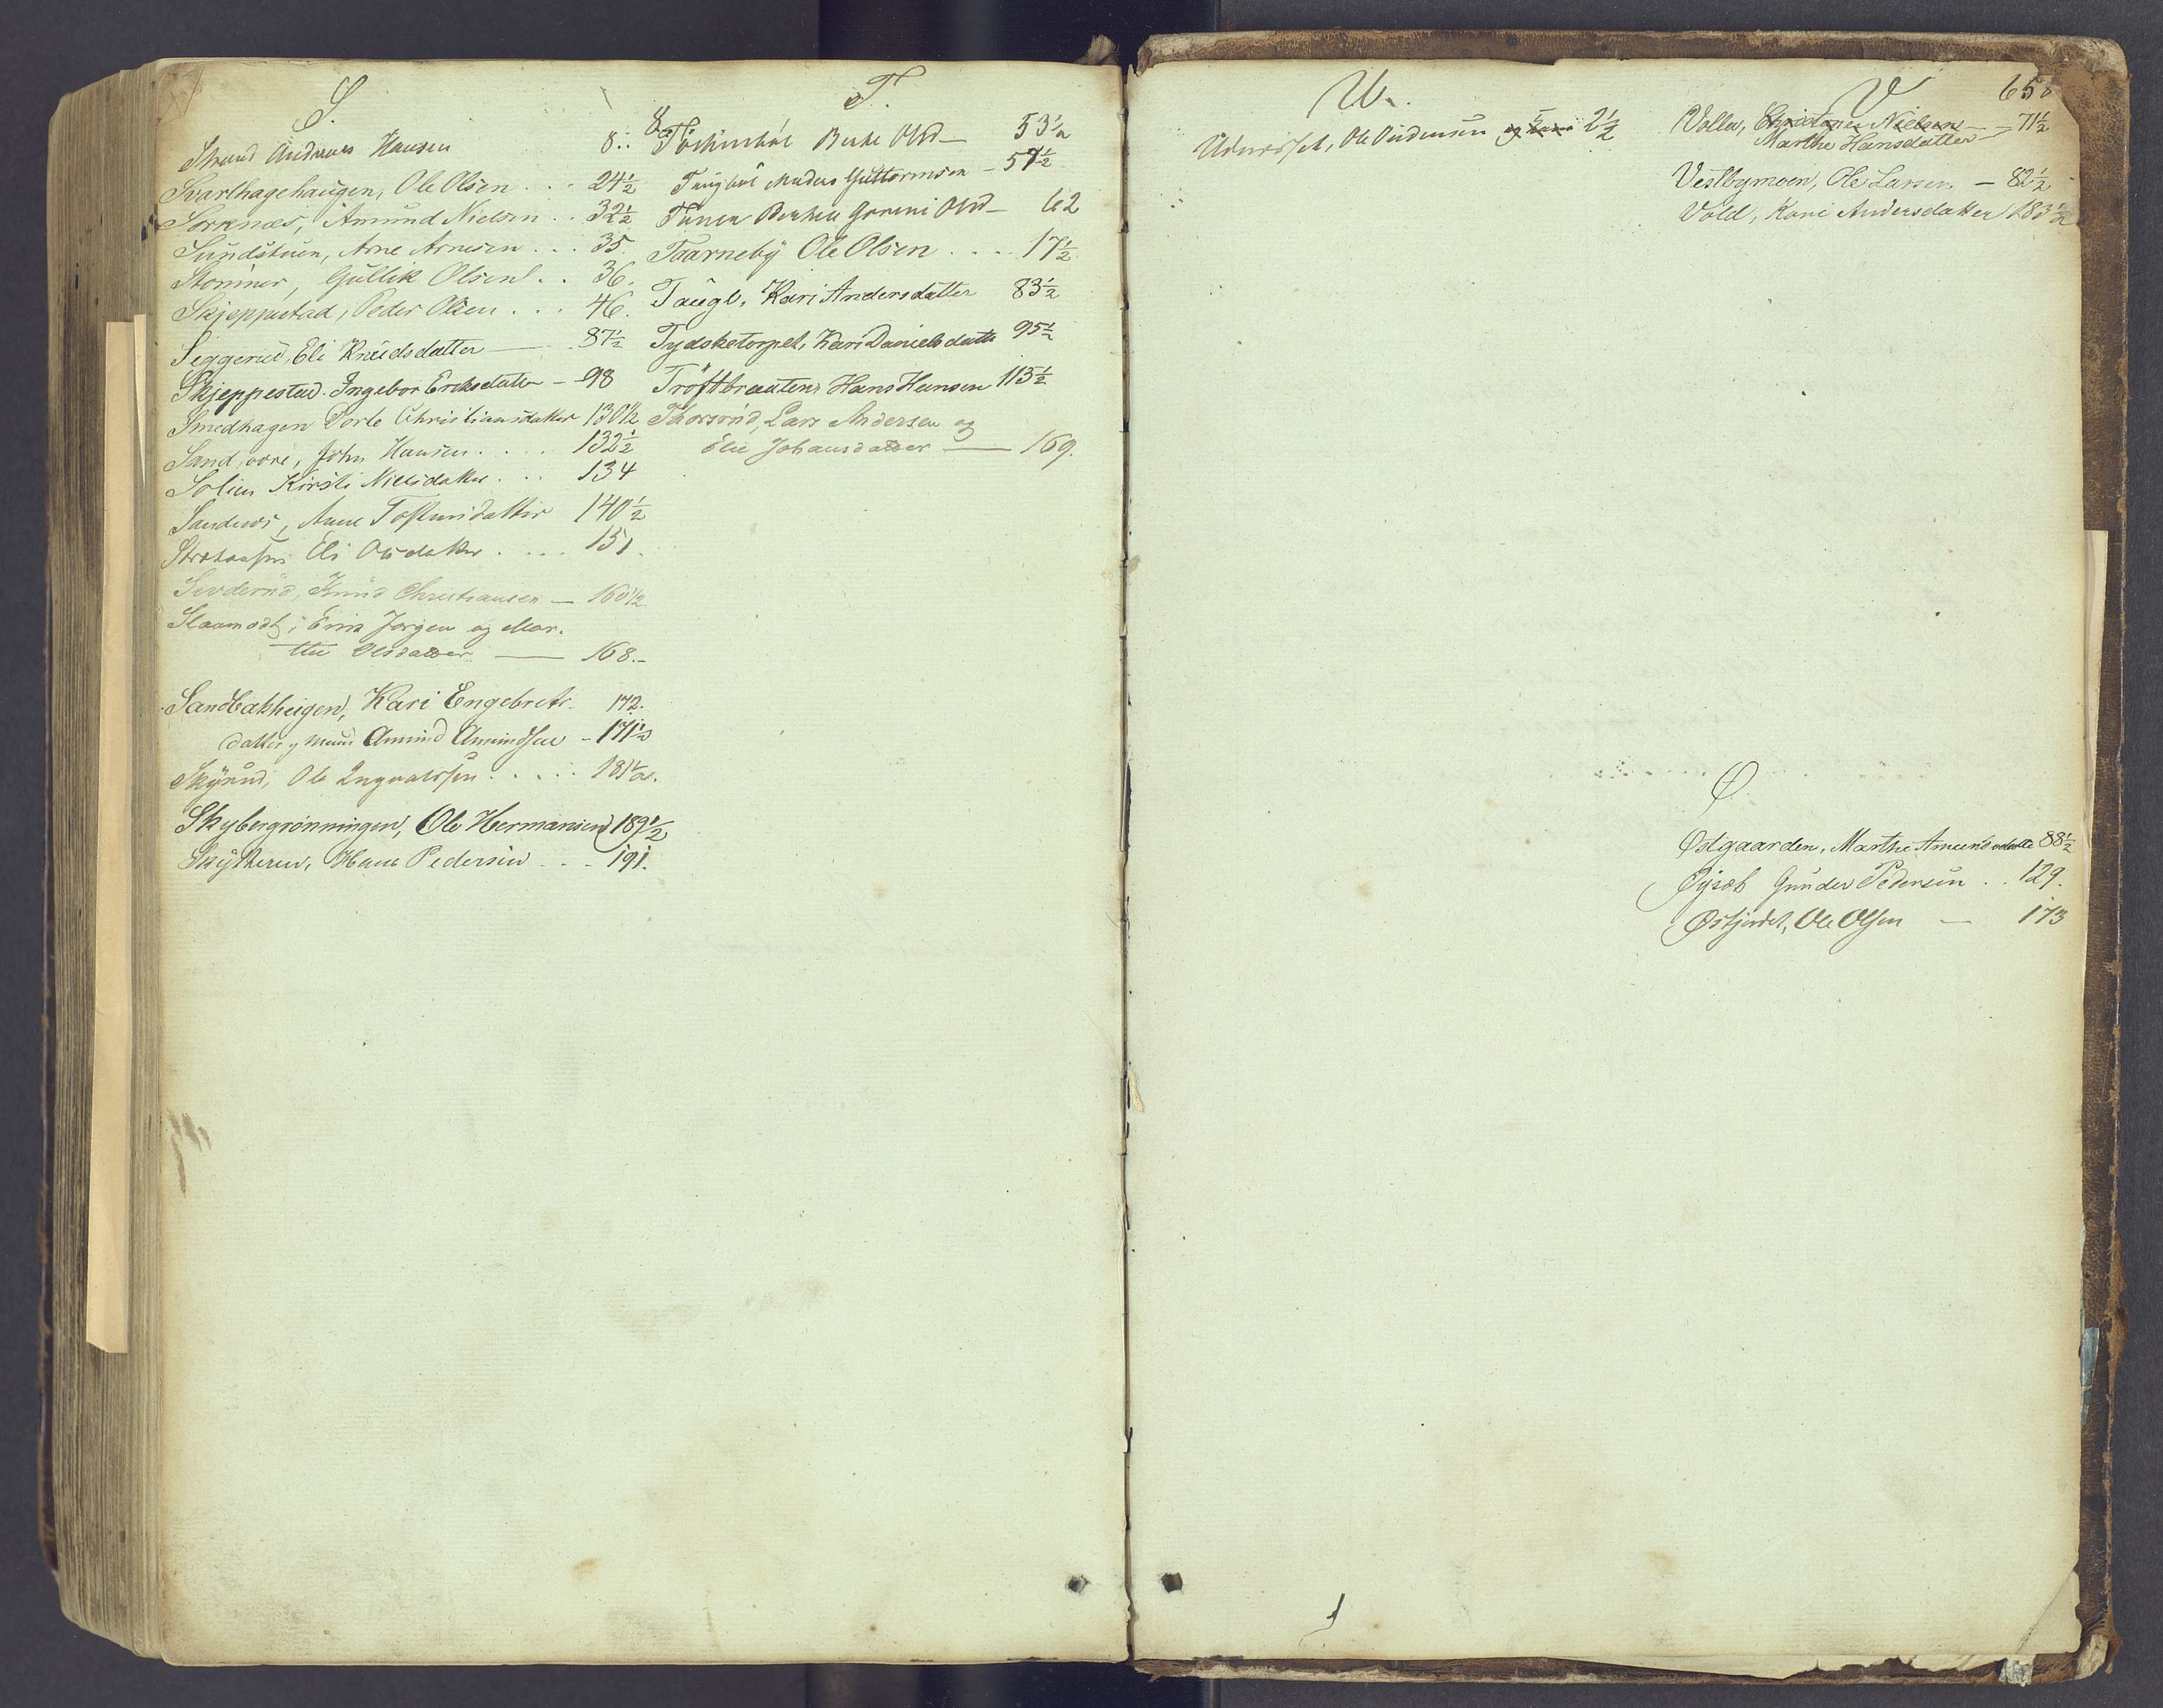 S.
Strand Andreas Hansen 8.
Svarthagehaugen, Ole Olsen . . . 24½
Sorknæs, Amund Nielsen . . 32½
Sundstuen, Arne Arnesen . . . 35.
Stömner, Gullik Olsen . . 36.
Skjeppestad, Peder Olsen . . . 46.
Seggerud Eli Knudsdatter — 87½
Skjeppestad. Ingebor Eriksdatter — 98
Smedhagen Dorte Christiansdatter 130½
Sand, John Hansen . . . . 132½
Solien Kirsti Nielsdatter . . . 134
Sandnes, Anne Tostensdatter 140½
Eli Olsdatter . . . . 151.
Knud Christiansen — 160½
Slaamodt, Jørgen og Mar-
the Olsdatter — 168.-
Sandbakheigen, Kari Engebrets- 172.
datter og Mand Amund Amundsen - 171½
Skyrud, Ole . . . . . 181½.
Skybergrønningen, Ole Hermansen 189½
Hans Pedersen . . . 191.
T.
Berte Olsd — 53½
Mads Guttormsen — 57½
Olsd — 62
Taarneby Ole Olsen . . . . 17½
Taugl, Kari Andersdatter 83½
Tydsketorpet, Kari Danielsdatte 95½
Tröftbraaten, Hans Hansen 113½
Thorsrud, Lars Andersen og
Elie Johansdatter — 169.
U.
Ole 2½
V
658
Volla, Christopher Nielsen — 71½
Marthe Hansdatter
Vestbymoen, Ole Larsen — 82½
Vold, Kari Andersdatter 183½
Ø.
Østgaarden, Marthe Amundsdatte 88½
Gunder Pedersen . . 129.
Østjordet, Ole Olsen — 173